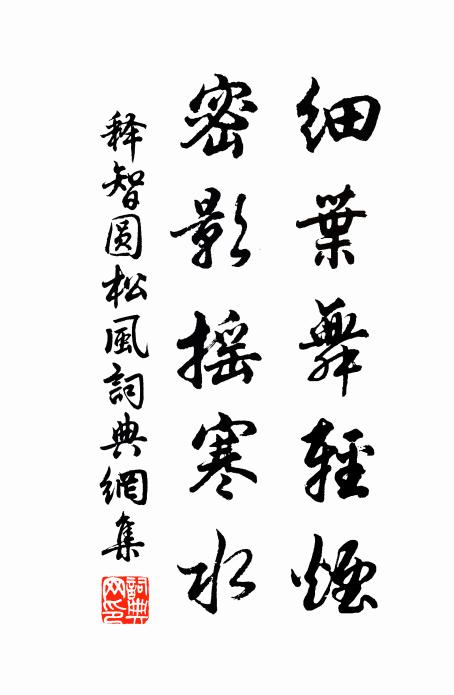 細葉舞輕煙
密影摇寒水
释智圆松風詞典網集
詞典网印